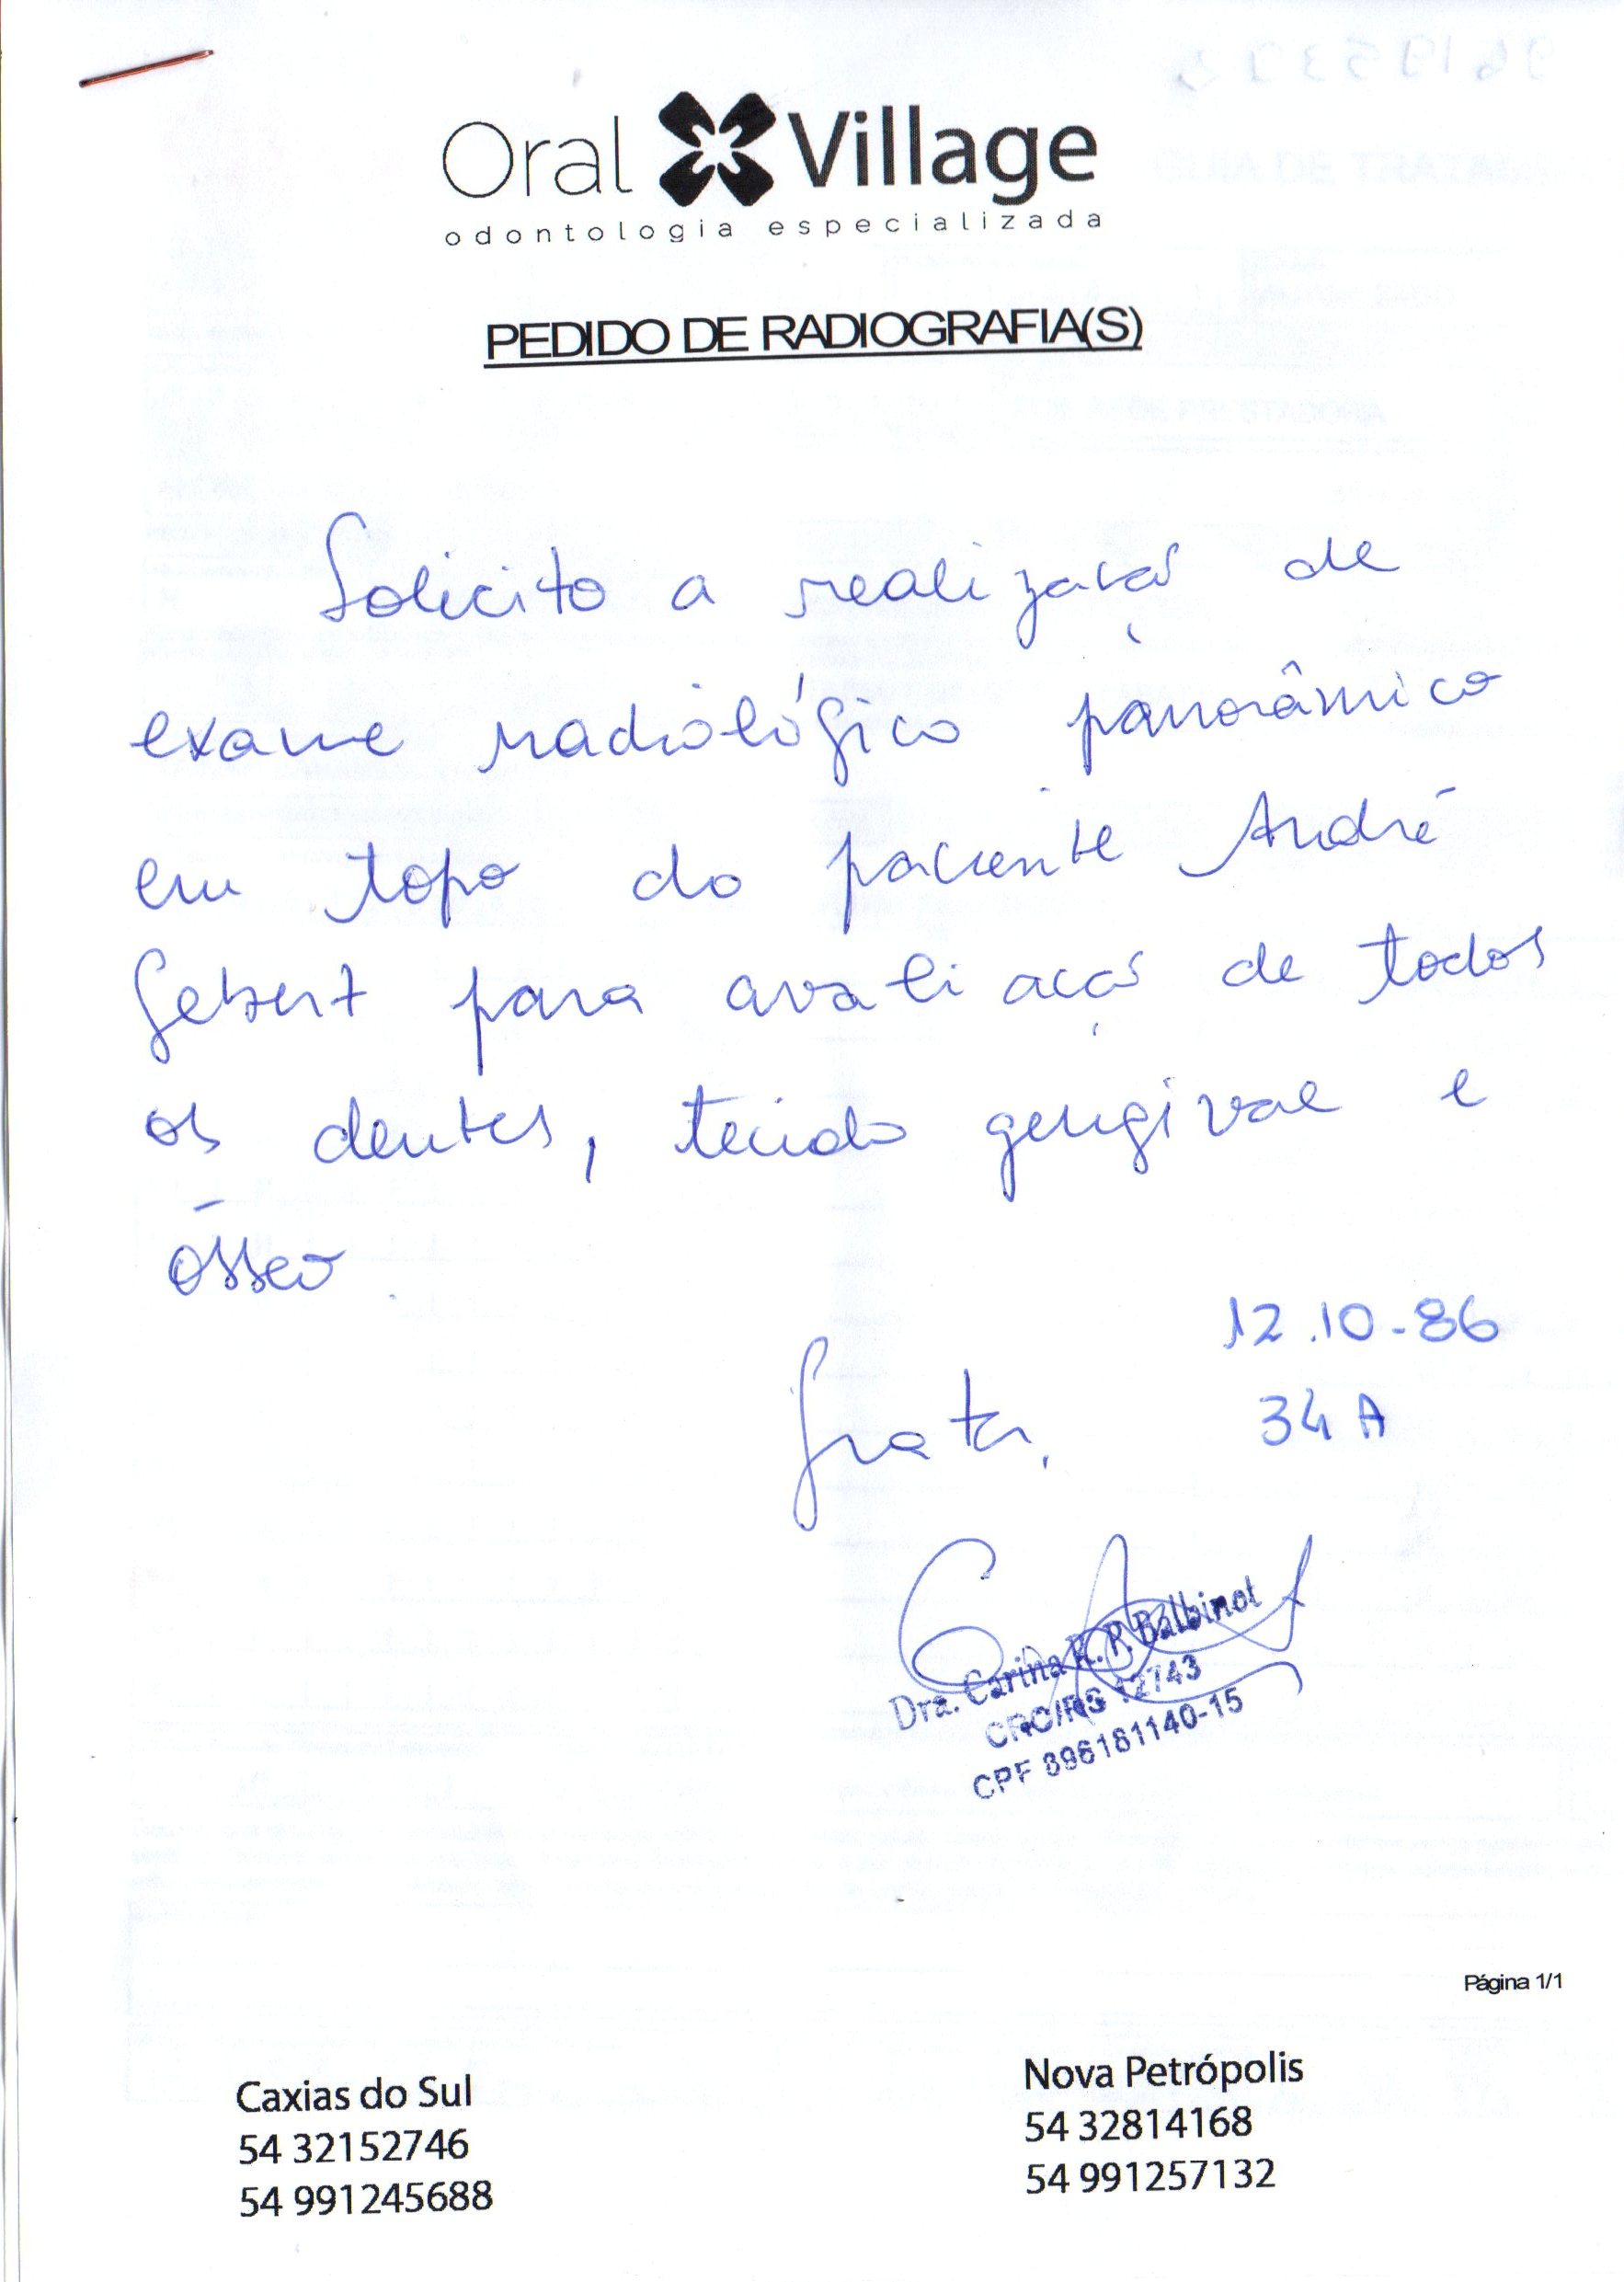 Oral Village
odontologia especializada
PEDIDO DE RADIOGRAFIA(S)
Solicito a realização de
exame radiológico panorâmico
em topo do paciente André
Gebert para avaliação de todos
os dentes, tecido gengival e
ósseo.
12.10-86
Grata,
34 A
Dra. Carina R. P. Balbinot
CRO/RS 12743
CPF 896181140-15
Página 1/1
Caxias do Sul
54 32152746
54 991245688
Nova Petrópolis
54 32814168
54 991257132